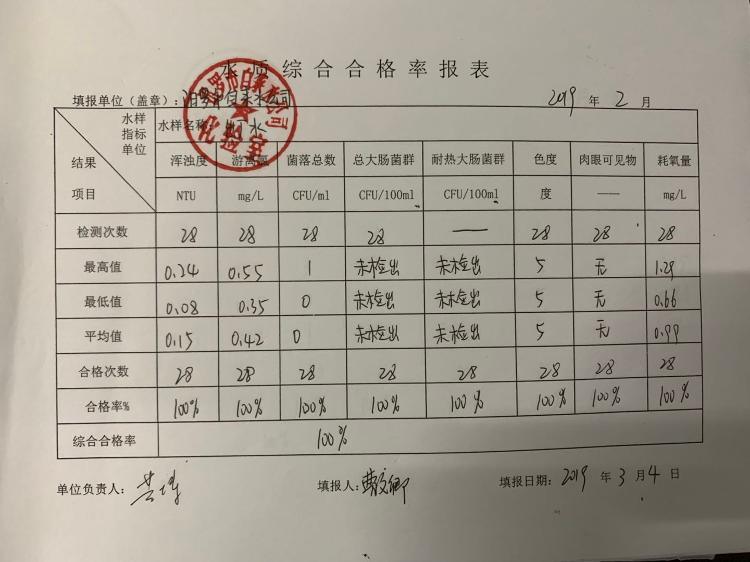 水质综合合格率报表
填报单位（盖章）：汨罗市自来水公司 2019 年 2 月
水样 指标 单位 结果 项目 水样名称: 出厂水
浑浊度 游离氯 菌落总数 总大肠菌群 耐热大肠菌群 色度 肉眼可见物 耗氧量
NTU mg/L CFU/ml CFU/100ml CFU/100ml 度 —— mg/L
检测次数 28 28 28 28 — 28 28 28
最高值 0.24 0.55 1 未检出 未检出 5 无 1.29
最低值 0.08 0.35 0 未检出 未检出 5 无 0.66
平均值 0.15 0.42 0 未检出 未检出 5 无 0.99
合格次数 28 28 28 28 28 28 28 28
合格率% 100% 100% 100% 100% 100% 100% 100% 100%
综合合格率 100%
单位负责人： 填报人： 填报日期：2019 年 3 月 4 日